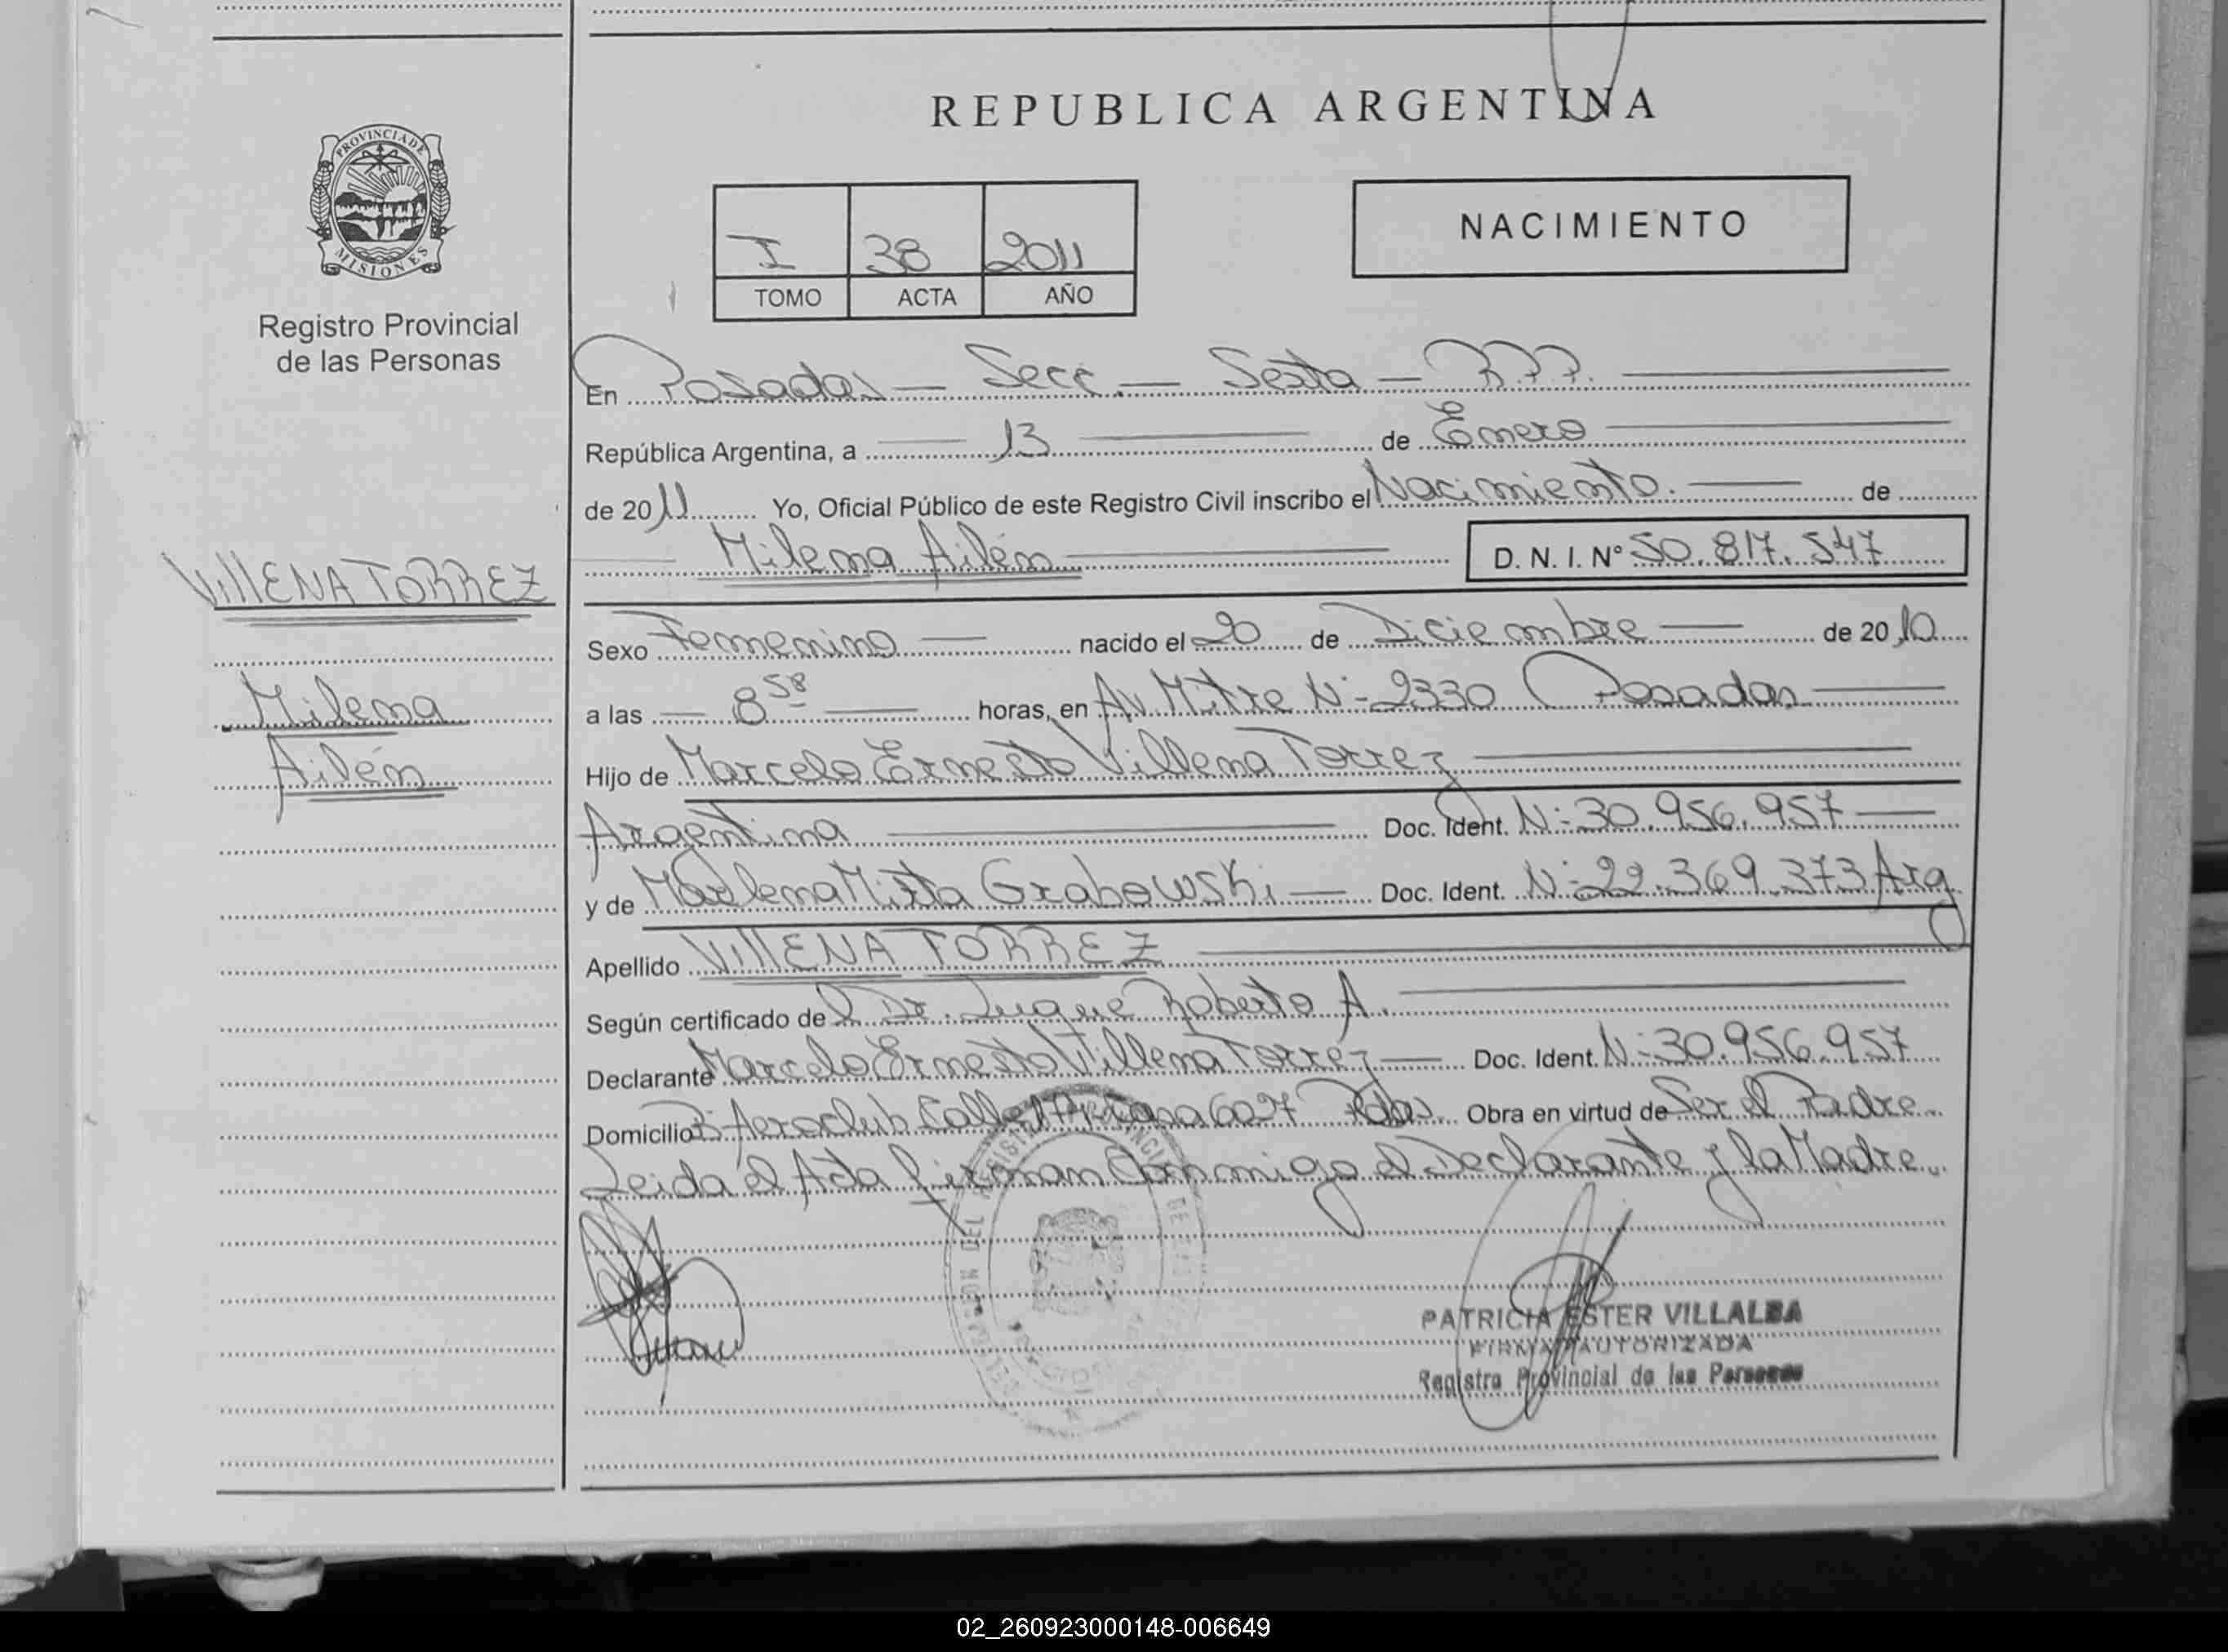 REPUBLICA ARGENTINA
PROVINCIA DE
MISIONES
Registro Provincial
de las Personas
I 38 2011
TOMO ACTA AÑO
NACIMIENTO
En Posadas — Secc. — Sexta — R.P.P.
República Argentina, a 13 de Enero
de 2011 Yo, Oficial Público de este Registro Civil inscribo el Nacimiento. de
Milema Ailén D. N. I. Nº 50.817.547
VIllENA TORREZ
Milema
Ailén
Sexo Femenino nacido el 20 de Diciembre de 2010
a las 8 58 horas, en Av Mitre Nº 2330 Posadas
Hijo de Marcelo Ernesto Villena Torrez
Argentina Doc. Ident. Nº 30.956.957
y de Marlena Mirta Grabowski Doc. Ident. Nº 22.369.373 Arg
Apellido VIllENA TORREZ
Según certificado del Dr. Luque Roberto A.
Declarante Marcelo Ernesto Villena Torrez Doc. Ident. Nº 30.956.957
Domicilio Bº Aeroclub Calle 6027 Pdas. Obra en virtud de Ser el Padre
Leida el Acta firman Conmigo el Declarante y la Madre.
PATRICIA ESTER VILLALBA
FIRMA AUTORIZADA
Registro Provincial de las Personas
02_260923000148-006649